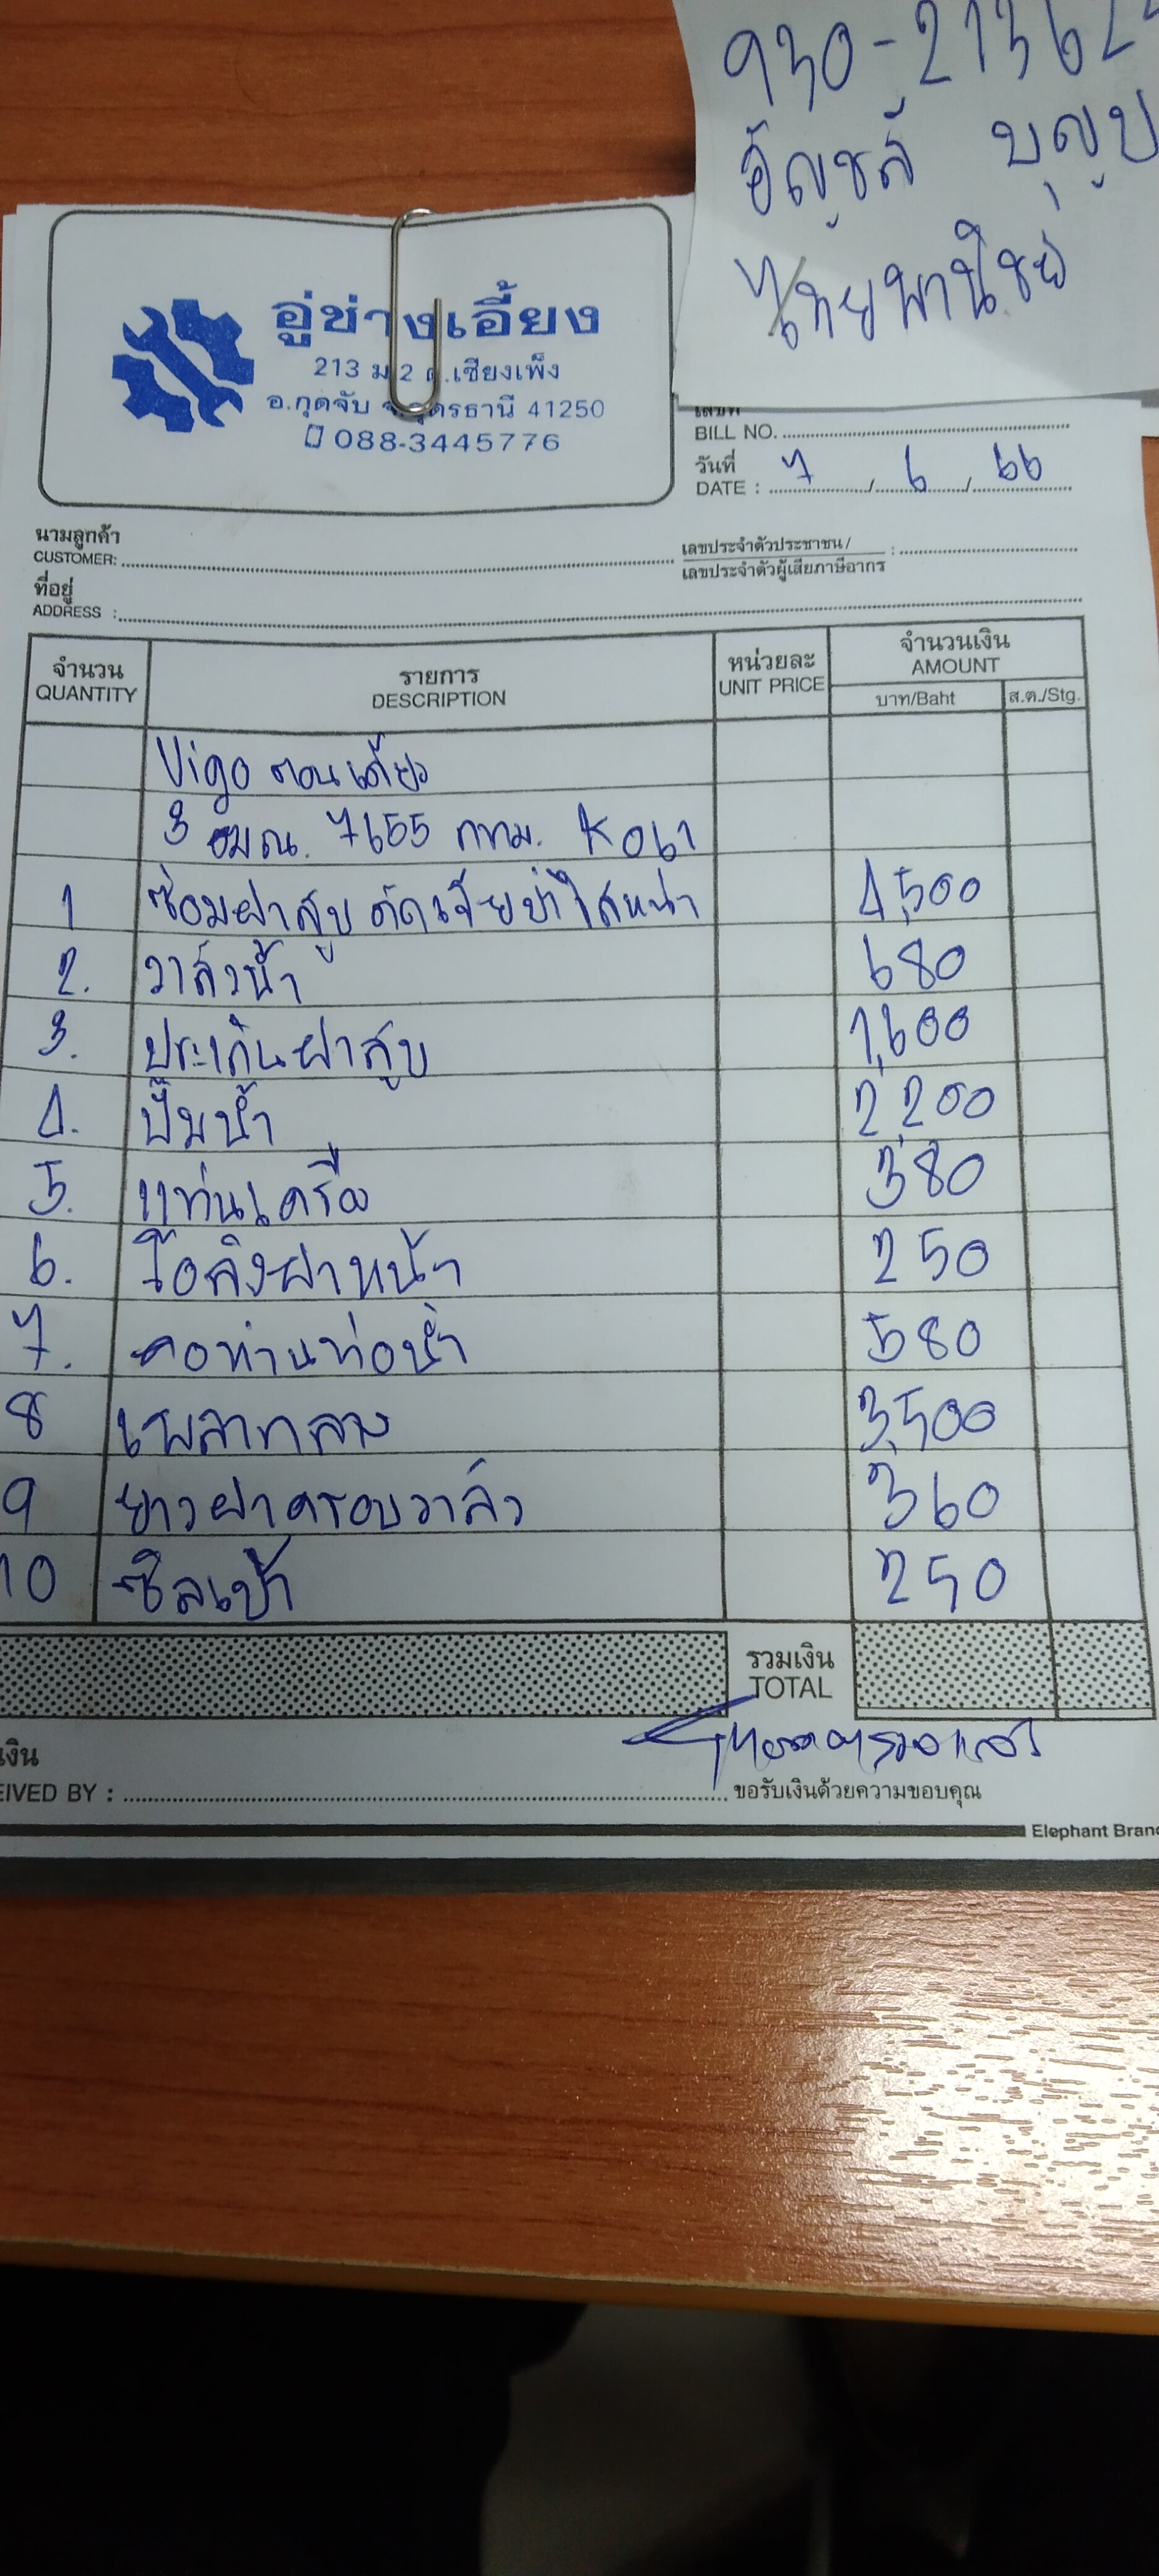 930-21362
อัญชลี บุญ
ไทยพานิชย์
อู่ช่างเอี้ยง
213 ม.2 ต.เชียงเพ็ง
อ.กุดจับ จ.อุดรธานี 41250
088-3445776
เลขที่
BILL NO.
วันที่
DATE : 7 / 6 / 66
นามลูกค้า
CUSTOMER:
เลขประจำตัวประชาชน /
เลขประจำตัวผู้เสียภาษีอากร :
ที่อยู่
ADDRESS :
จำนวน รายการ หน่วยละ จำนวนเงิน
QUANTITY DESCRIPTION UNIT PRICE AMOUNT
บาท/Baht ส.ต./Stg.
Vigo ตอนเดียว
3 ฒณ. 7655 กทม. K061
1 ซ่อมฝาสูบ คัดเจียบ่าใสหน้า 4,500
2. วาล์วน้ำ 680
3. ประเก็นฝาสูบ 1,600
4. ปั๊มน้ำ 2,200
5. แท่นเครื่อง 380
6. โอลิงฝาหน้า 250
7. คอห่านท่อน้ำ 580
8 เพลากลาง 3,500
9 ยางฝาครอบวาล์ว 360
10 ซิลเบ้า 250
รวมเงิน
TOTAL
เงิน
EIVED BY :
ขอรับเงินด้วยความขอบคุณ
Elephant Bran